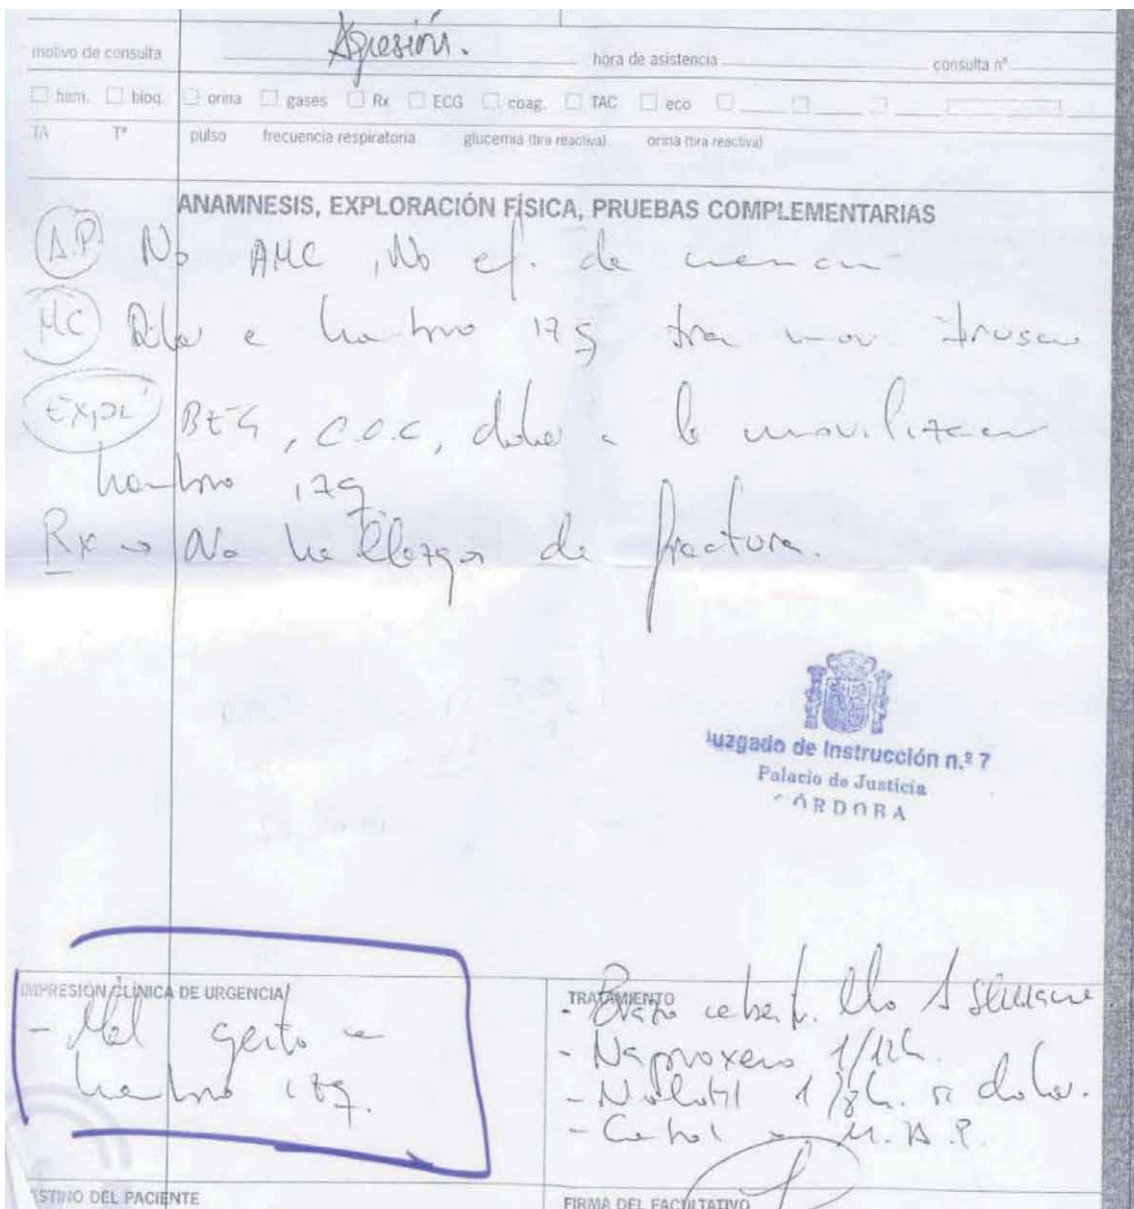 Agresión.
motivo de consulta hora de asistencia consulta nº
hem. bioq. orina gases Rx ECG coag. TAC eco
TA Tª pulso frecuencia respiratoria glucemia (tira reactiva) orina (tira reactiva)
ANAMNESIS, EXPLORACIÓN FÍSICA, PRUEBAS COMPLEMENTARIAS
A.P. No AMC, No ef. de
MC Dolor e hombro izq tras mov. brusco
EXPL BEG, C.O.C, dolor a la movilizacion
hombro izq
Rx → No hallazgos de fractura.
Juzgado de Instrucción n.º 7
Palacio de Justicia
CÓRDOBA
IMPRESIÓN CLÍNICA DE URGENCIA
- Mal gesto e
hombro izq.
TRATAMIENTO
- Brazo cabestrillo 1 semana
- Naproxeno 1/12h.
- Nolotil 1/8h. si dolor.
- Control M.A.P.
ESTINO DEL PACIENTE
FIRMA DEL FACULTATIVO